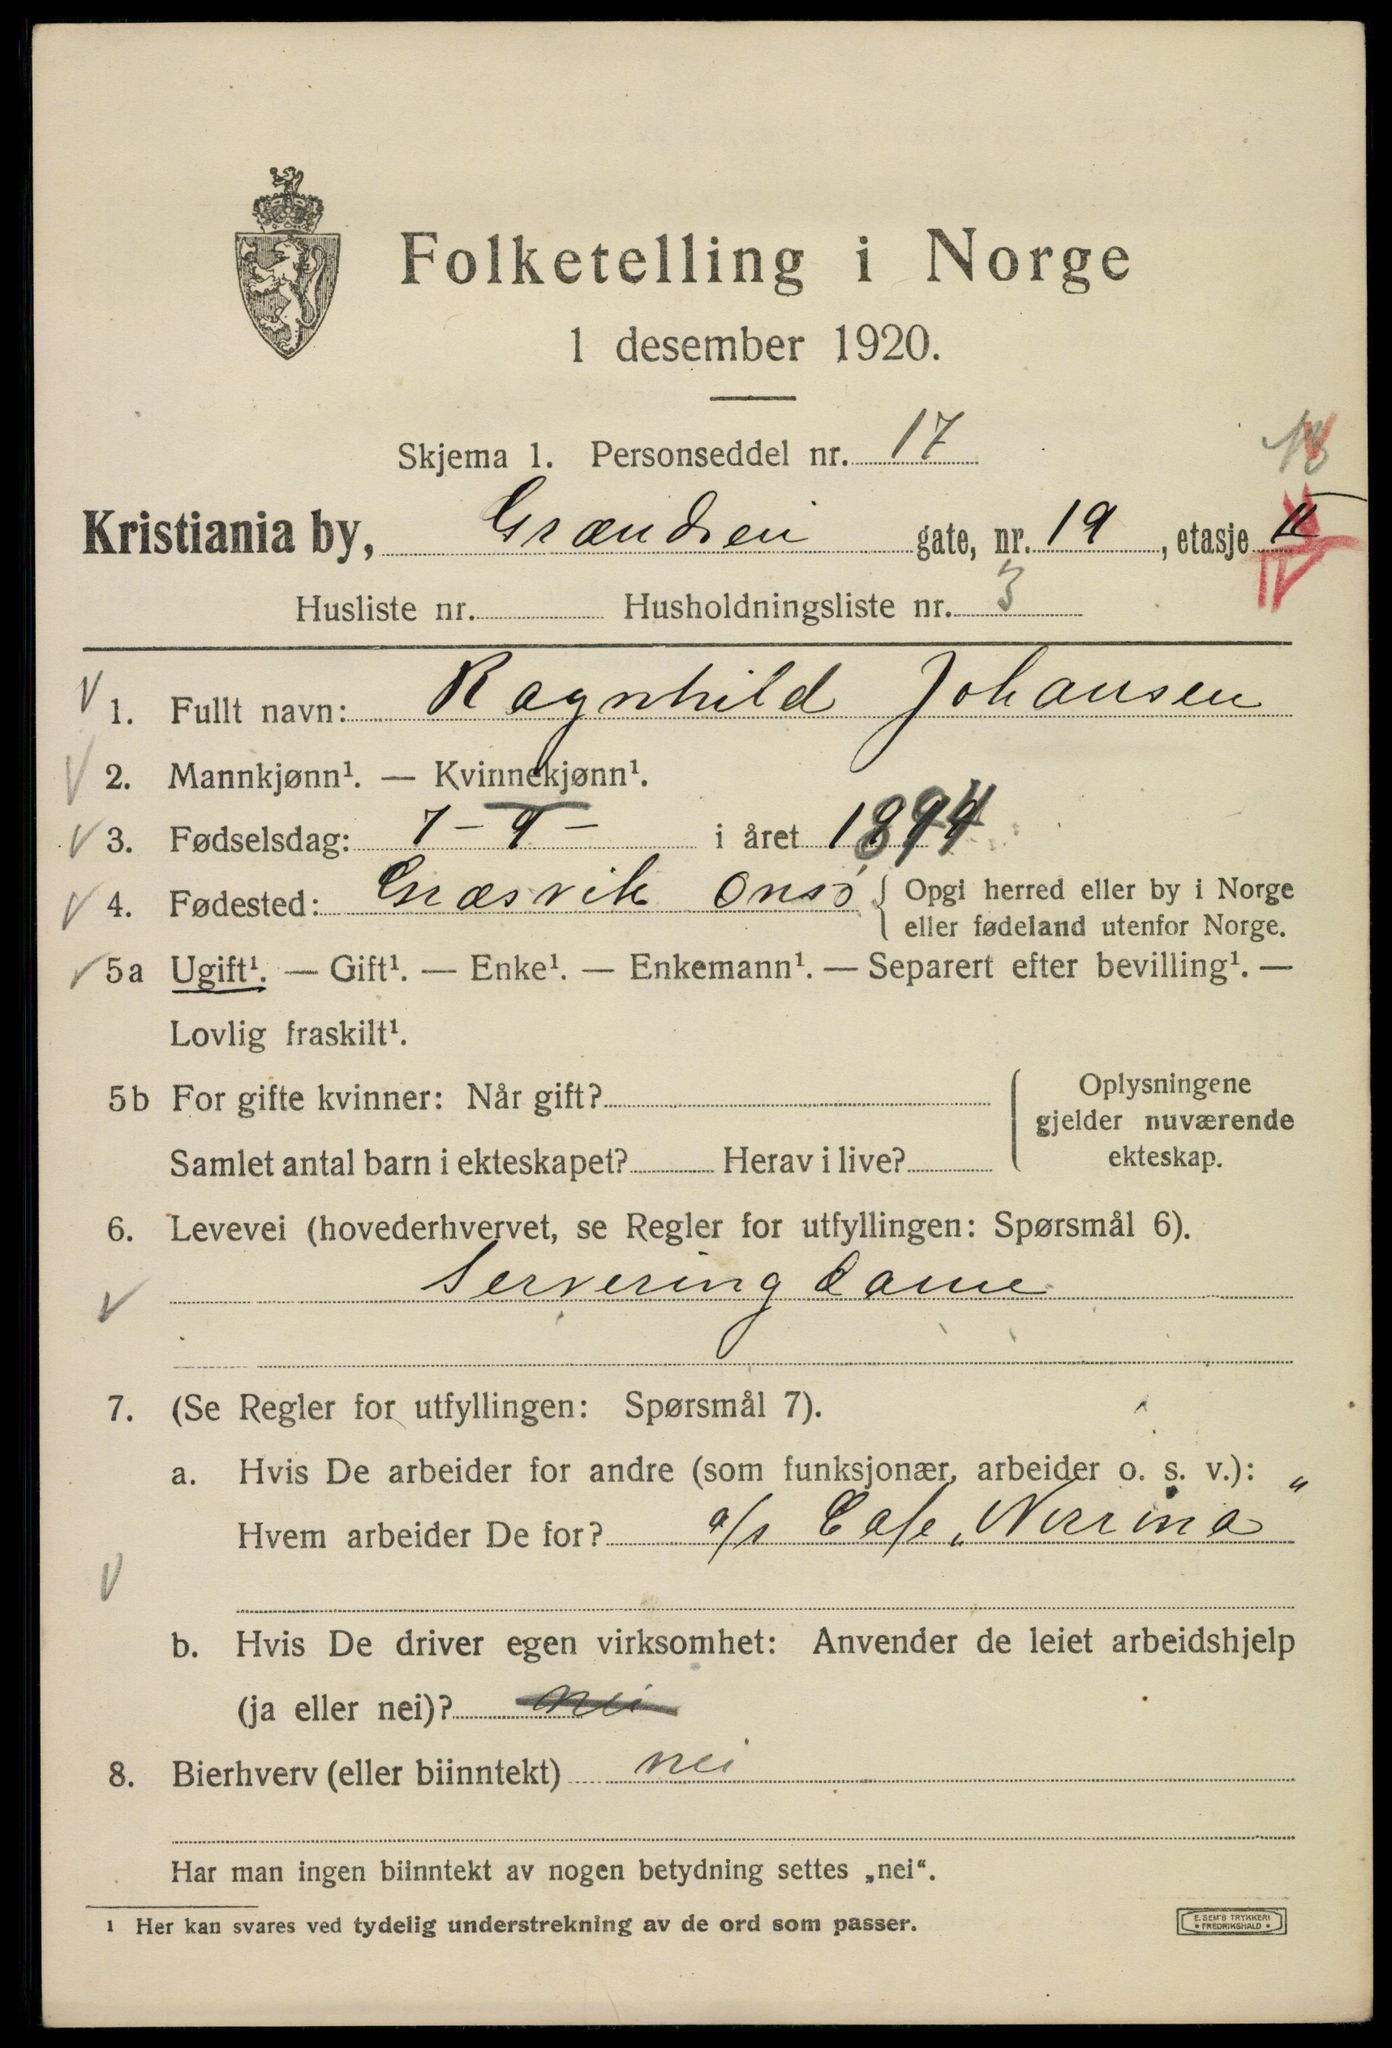 Folketelling i Norge
1 desember 1920.
Skjema 1. Personseddel nr. 17
18
Kristiania by, Grændsen gate, nr. 19, etasje II
IV
Husliste nr. Husholdningsliste nr. 3
1. Fullt navn: Ragnhild Johansen
2. Mannkjønn¹. — Kvinnekjønn¹.
3. Fødselsdag: 7 – 9 – i året 1894
4. Fødested: Græsvik Onsö { Opgi herred eller by i Norge
eller fødeland utenfor Norge.
5a Ugift¹. — Gift¹. — Enke¹. — Enkemann¹. — Separert efter bevilling¹. —
Lovlig fraskilt¹.
5b For gifte kvinner: Når gift? Oplysningene
gjelder nuværende
Samlet antal barn i ekteskapet? Herav i live? ekteskap.
6. Levevei (hovederhvervet, se Regler for utfyllingen: Spørsmål 6).
Servering dame
7. (Se Regler for utfyllingen: Spørsmål 7).
a. Hvis De arbeider for andre (som funksjonær, arbeider o. s. v.):
Hvem arbeider De for? a/s Cafe
b. Hvis De driver egen virksomhet: Anvender de leiet arbeidshjelp
(ja eller nei)? nei
8. Bierhverv (eller biinntekt) nei
Har man ingen biinntekt av nogen betydning settes „nei“.
¹ Her kan svares ved tydelig understrekning av de ord som passer.
E. SEM'S TRYKKERI
* FREDRIKSHALD *